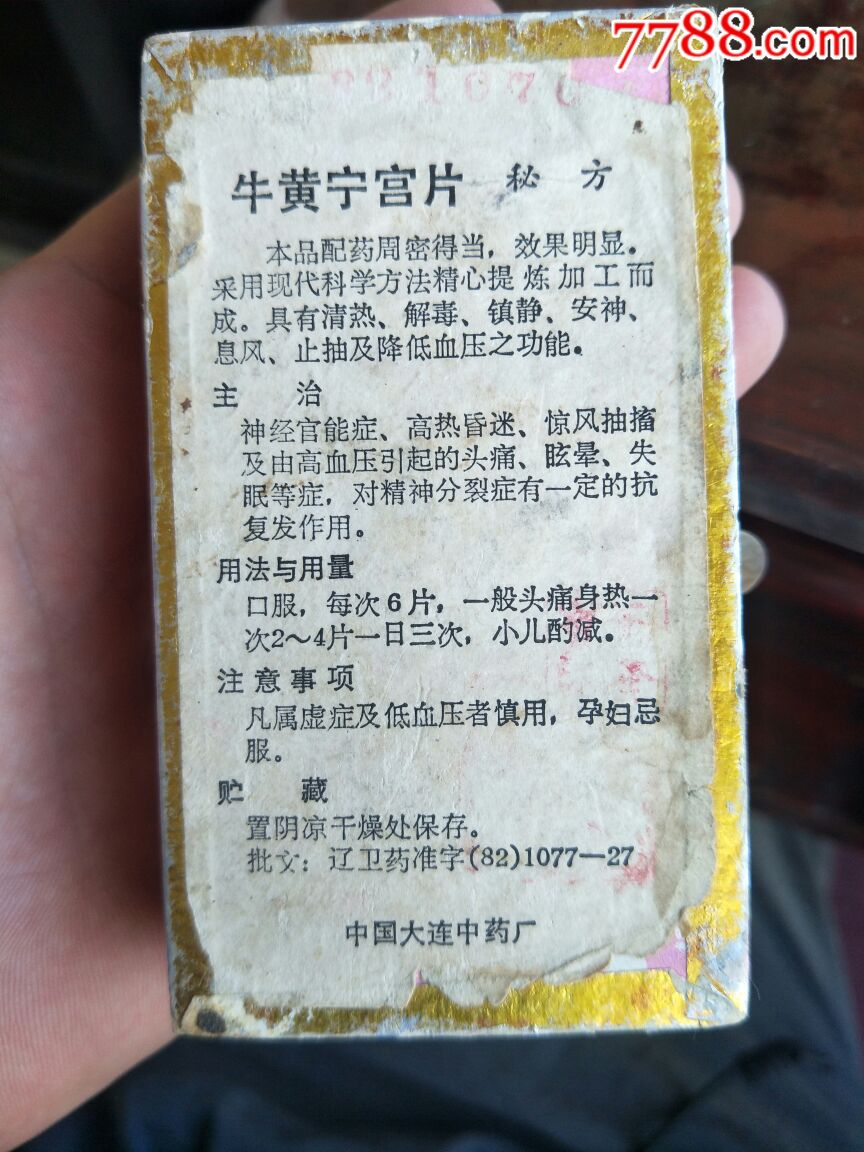 7788.com
牛黄宁宫片 秘方
本品配药周密得当，效果明显。
采用现代科学方法精心提炼加工而
成。具有清热、解毒、镇静、安神、
息风、止抽及降低血压之功能。
主 治
神经官能症、高热昏迷、惊风抽搐
及由高血压引起的头痛、眩晕、失
眠等症，对精神分裂症有一定的抗
复发作用。
用法与用量
口服，每次6片，一般头痛身热一
次2～4片一日三次，小儿酌减。
注意事项
凡属虚症及低血压者慎用，孕妇忌
服。
贮 藏
置阴凉干燥处保存。
批文：辽卫药准字(82)1077—27
中国大连中药厂